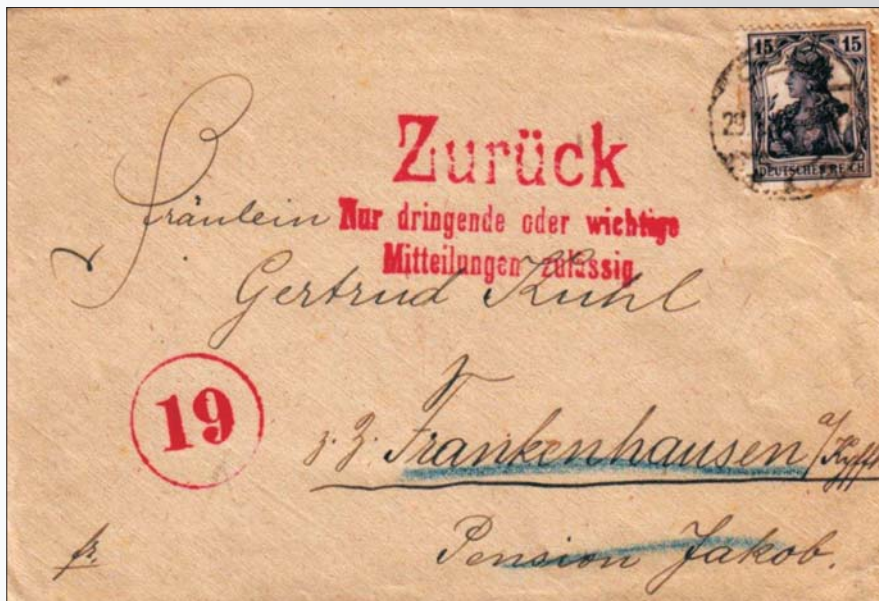 15 15
DEUTSCHES REICH
29.
Zurück
Nur dringende oder wichtige
Mitteilungen zulässig
Fräulein
Gertrud Kuhl
19
z. Z. Frankenhausen a/Kyffh
Pension Jakob.
fr.